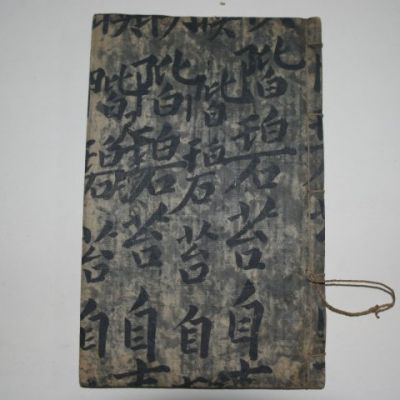 階碧苔自
階碧苔自
階碧苔自
階碧苔自